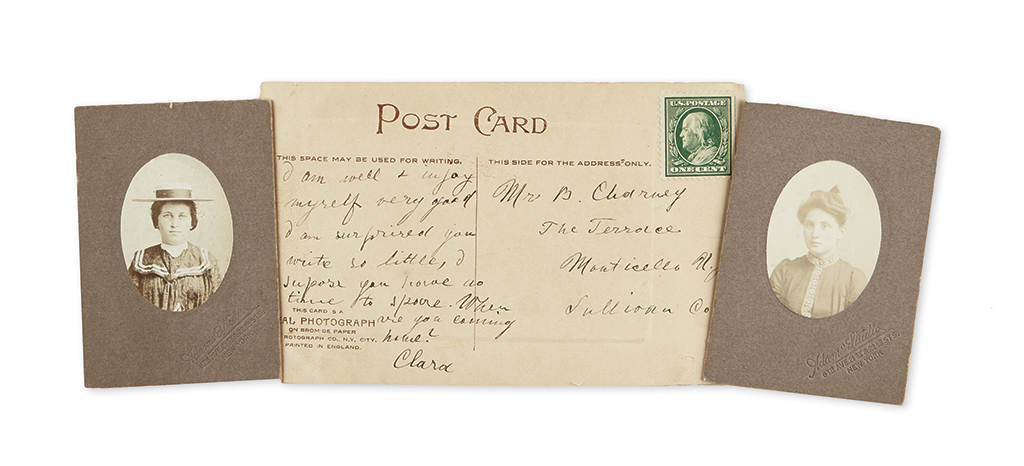 POST CARD
U.S. POSTAGE
ONE CENT
THIS SPACE MAY BE USED FOR WRITING.
THIS SIDE FOR THE ADDRESS ONLY.
I am well & injoy
myself very good
I am surprised you
write so little, I
supose you have no
time to spare. When
are you coming
home?
Clara
Mr B. Charney
The Terrace
Monticello N.Y
Sullivan Co
THIS CARD IS A
AL PHOTOGRAPH
ON BROMIDE PAPER
ROTOGRAPH CO., N.Y. CITY.
PRINTED IN ENGLAND.
NEW YORK